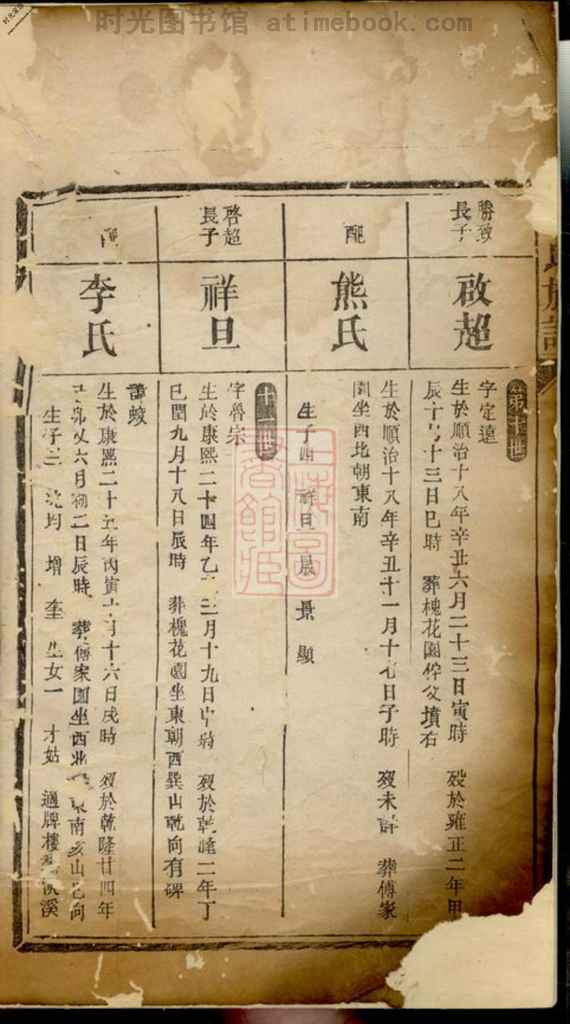 时光图书馆 atimebook.com
氏族譜
勝致
長子
啟超
第十世
字定遠
生於順治十八年辛丑六月二十三日寅時 歿於雍正二年甲
辰十月十三日巳時 葬槐花園 父墳右
配
熊氏
生於順治十八年辛丑十一月十七日子時 歿未詳 葬傅家
園坐西北朝東南
生子四 祥旦 晨 景 顯
啓超
長子
祥旦
十一世
字魯宗
生於康熙二十四年乙 二月十九日 時 歿於乾隆二年丁
巳閏九月十八日辰時 葬槐花園坐東朝西巽山乾向有碑
配
李氏
諱姣
生於康熙二十五年丙寅 月十六日戌時 歿於乾隆廿四年
己卯 六月初二日辰時 葬傅家園坐西北 東南亥山巳向
生子三 均 增 奎 生女一 才姑 適牌樓 溪
上海圖書館藏